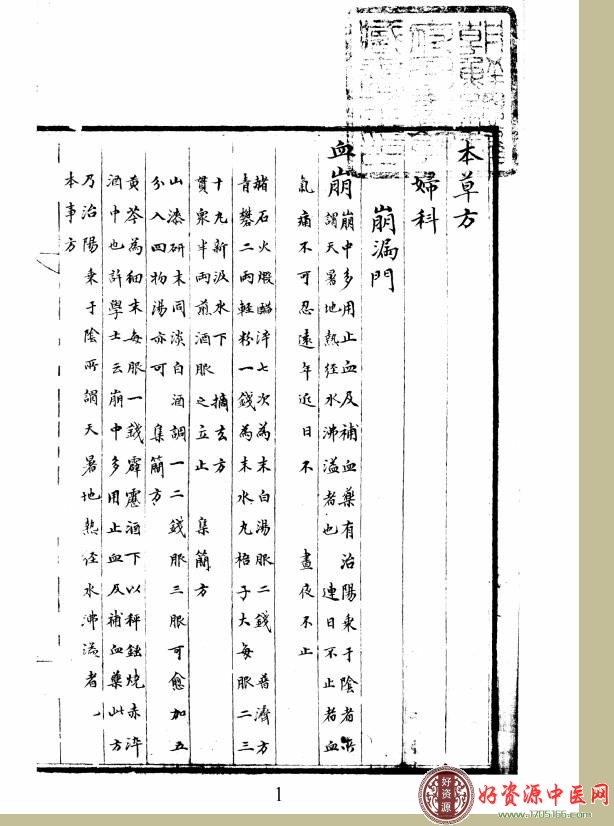 本草方
婦科
崩漏門
血崩
崩中多用止血及補血藥有治陽乘于陰者所
謂天暑地熱經水沸溢者也 連日不止者血
氣痛不可忍遠年近日不 晝夜不止
赭石火煅醋淬七次為末白湯服二錢 普濟方
青礬二兩輕粉一錢為末水丸梧子大每服二三
十丸新汲水下 摘玄方
貫衆半兩煎酒服之立止 集簡方
山漆研末同淡白酒調一二錢服三服可愈加五
分入四物湯亦可 集簡方
黄芩為細末每服一錢霹靂酒下以秤錘燒赤淬
酒中也許學士云崩中多用止血及補血藥此方
乃治陽乘于陰所謂天暑地熱經水沸溢者
本事方
1
好资源
好资源中医网
www.1705166.com